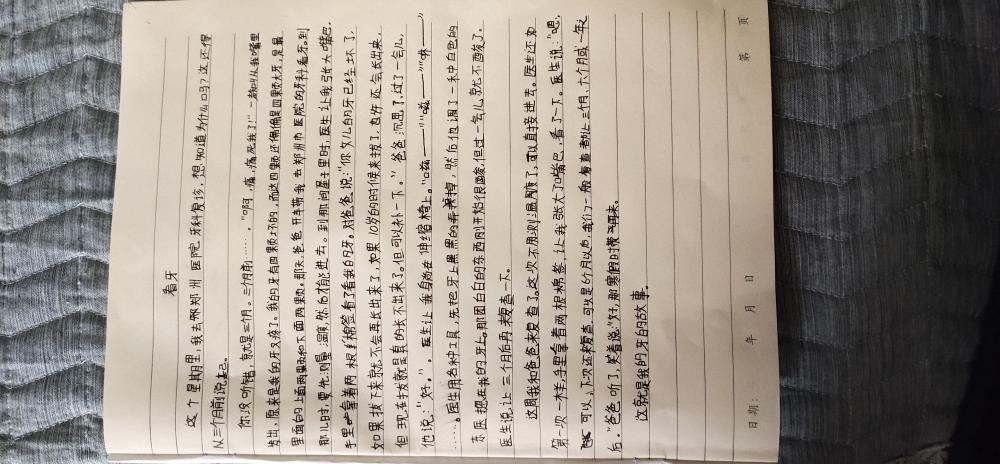 看牙
这个星期里，我去郑州医院牙科复诊，想知道为什么吗？这还得
从三个月前说起。
你没听错，就是三个月。三个月前……，“啊，痛，痛死我了！”一声叫从我嘴里
发出，原来是我的牙又疼了。我的牙有四颗坏的，而这四颗还偏偏是四颗大牙，是最
里面的上面两颗和下面两颗。那天，爸爸开车带我去郑州市医院的牙科看牙，到
那儿时，要先测量温度，然后才能进去。到那间屋子里时，医生让我张大嘴巴，
手里拿着两根棉签看了看我的牙。对爸爸说：“你女儿的牙已经坏了，
如果拔下来就不会再长出来了，如果10岁的时候来拔了，也许还会长出来，
但现在拔就是真的长不出来了。但可以补一下。”爸爸沉思了，过了一会儿，
他说：“好。”，医生让我自躺在伸缩椅上。“滋——”“嗞——”“咻——”
……。医生用各种工具，先把牙上黑黑的弄掉，然后他调了一种白色的
东西摁在我的牙上。那团白白的东西刚开始很酸，但过一会儿就不酸了。
医生说，让三个月后再来复查一下。
这周我和爸爸来复查了。这次不用测温度了，可以直接进去。医生还如
第一次一样手里拿着两根棉签，让我张大了嘴巴，看了一下。医生说：“嗯，
可以，下次还来复查，可以是6个月以后，我们一般有查都让三个月、六个月或一年
后。”爸爸听了，笑着说：“好，那寒假时再来。
这就是我的牙的故事。
日期：　年　月　日
第　页